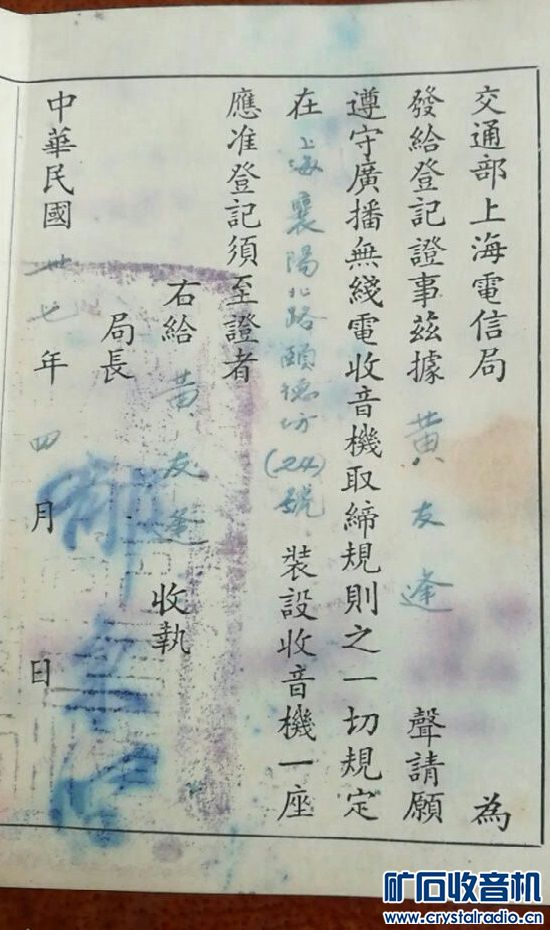 交通部上海電信局 為
發給登記證事茲據 黄友逢 聲請願
遵守廣播無綫電收音機取締規則之一切規定
在 上海襄陽北路頤德坊(24)號 裝設收音機一座
應准登記須至證者
右給 黄友逢 收執
局長
中華民國 卅七 年 四 月 日
矿石收音机
www.crystalradio.cn